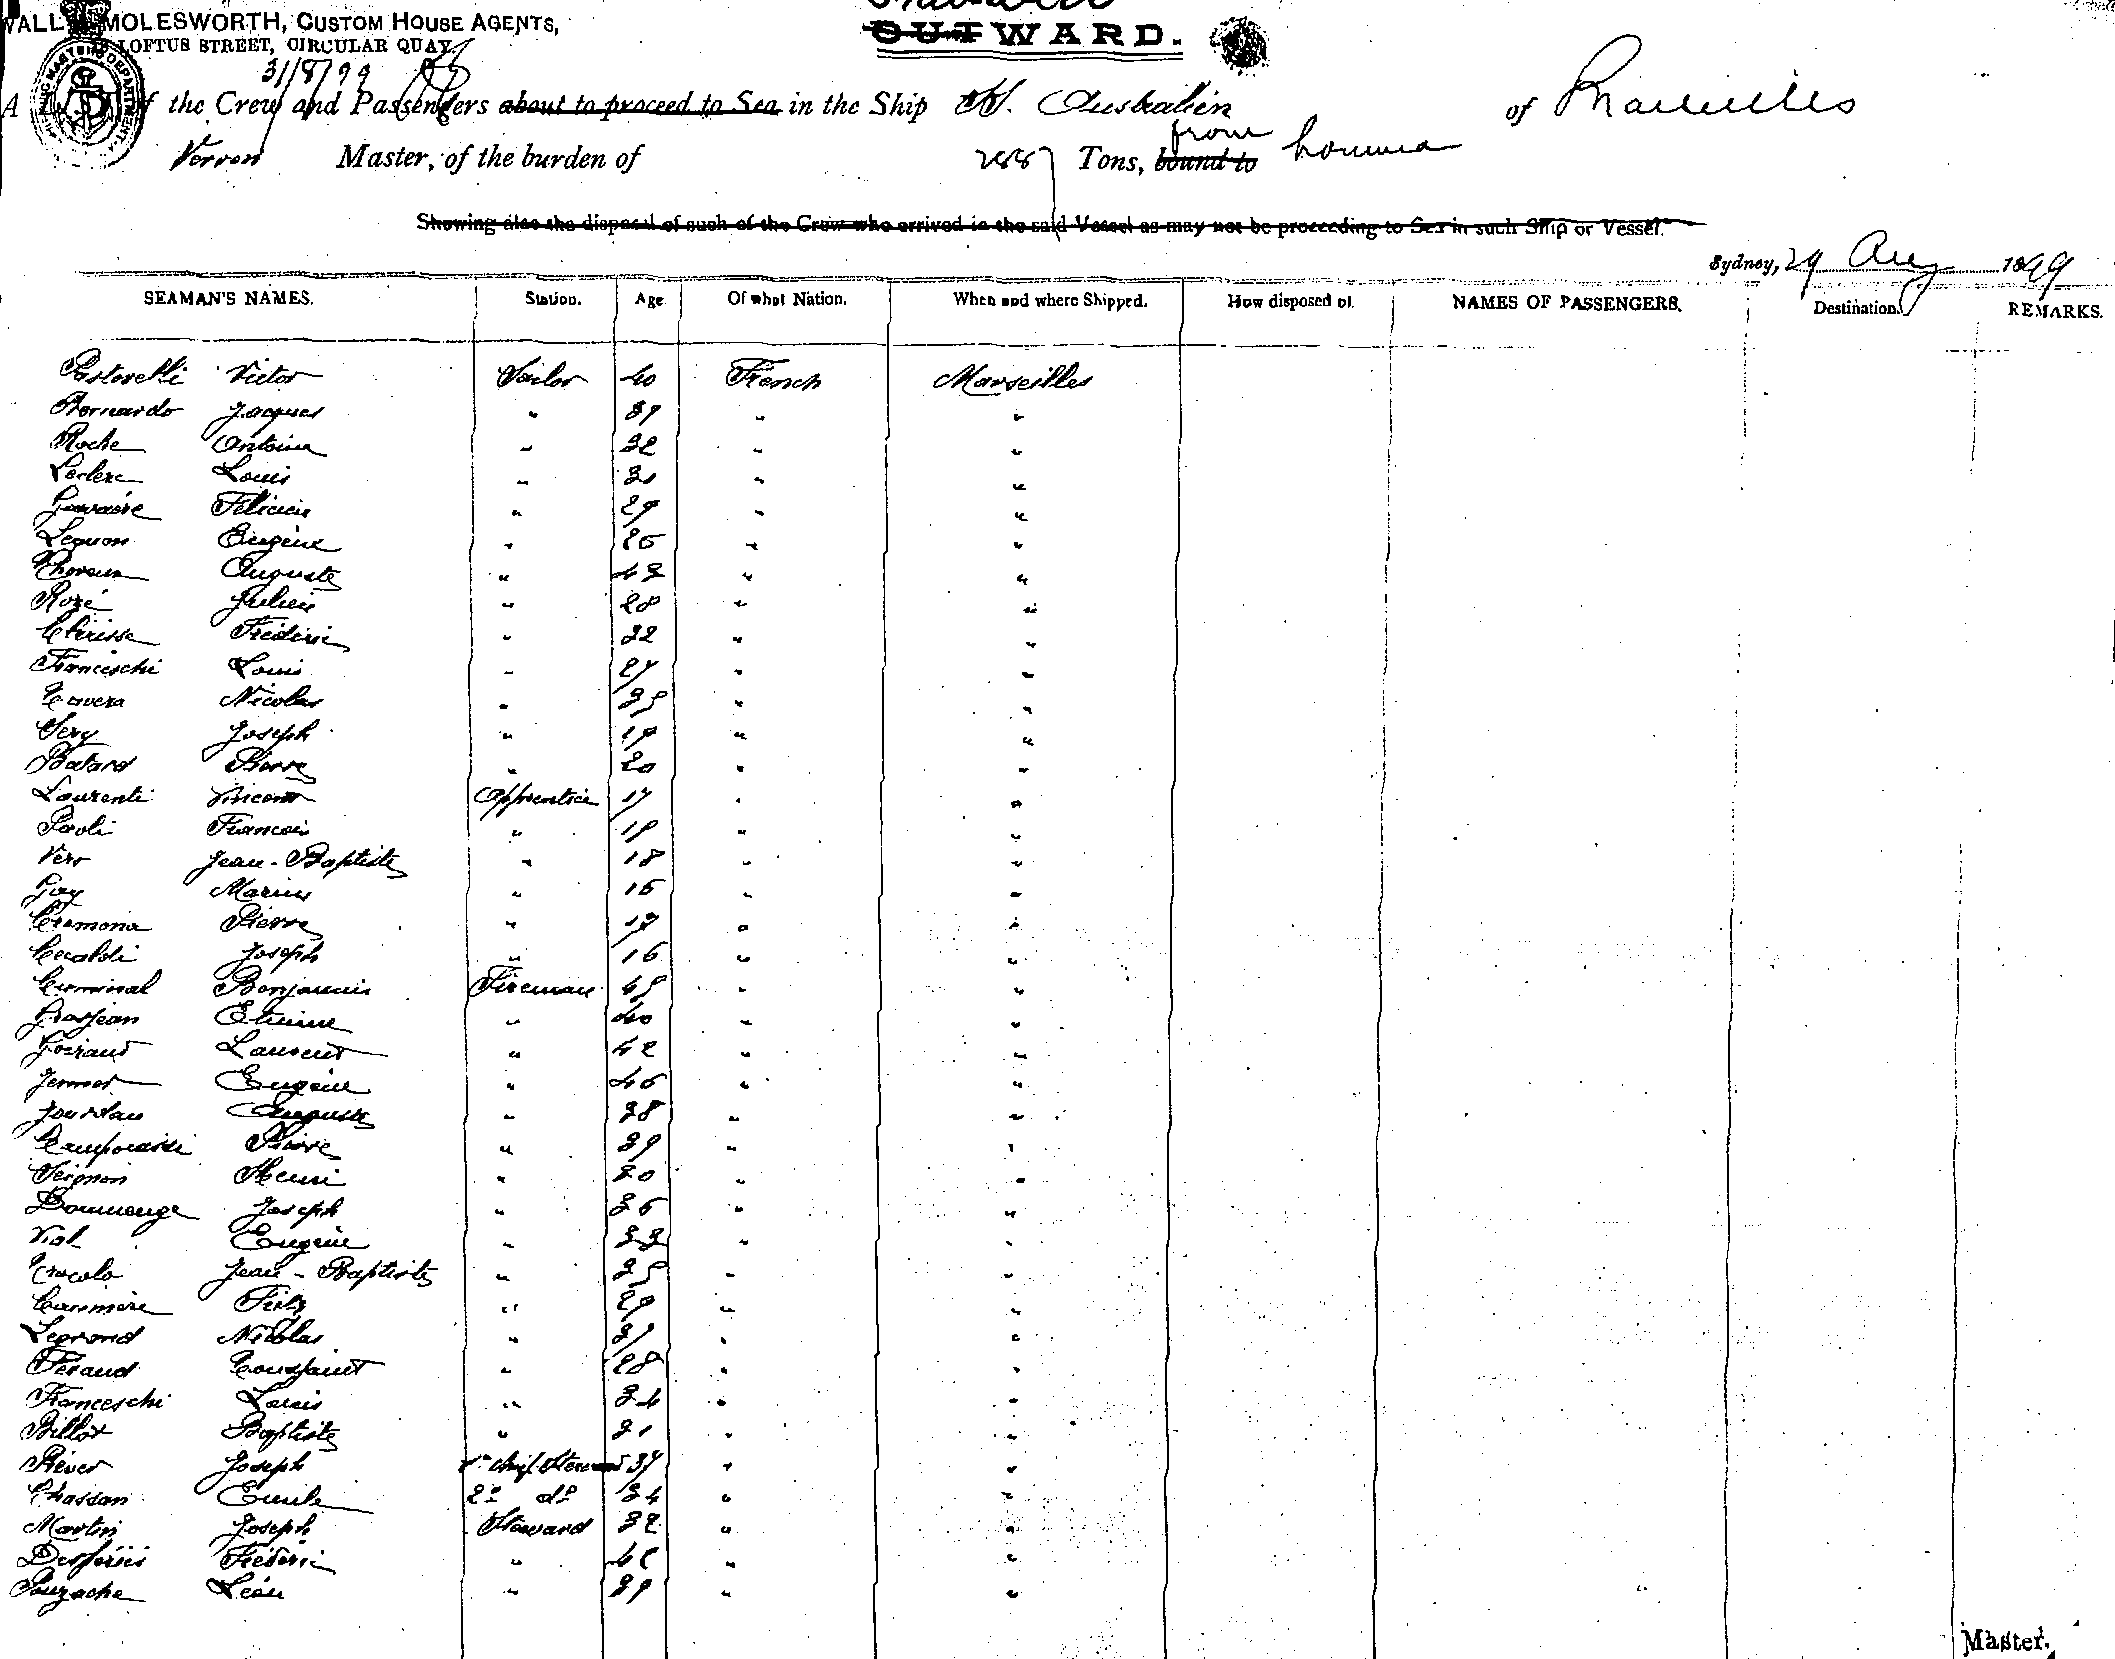 WALL MOLESWORTH, CUSTOM HOUSE AGENTS,
LOFTUS STREET, CIRCULAR QUAY
OUTWARD.
31/8/99
A of the Crew and Passengers about to proceed to Sea in the Ship Australien of Marseilles
Verron Master, of the burden of Tons, bound to from Noumea
Showing also the disposal of such of the Crew who arrived in the said Vessel as may not be proceeding to Sea in such Ship or Vessel.
Sydney, 29 Aug 1899
SEAMAN'S NAMES. Station. Age Of what Nation. When and where Shipped. How disposed of. NAMES OF PASSENGERS. Destination. REMARKS.
Pastorelli Victor Sailor 40 French Marseilles
Bernardo Jacques " 39 " "
Roche Antoine " 32 " "
Leclerc Louis " " "
Félicien " 29 " "
Lequon Eugène " 26 " "
Auguste " 43 " "
Rozé Julien " 28 " "
Clérisse Frédéric " 32 " "
Franceschi Louis " 27 " "
Nicolas " 35 " "
Sery Joseph " 19 " "
Batard Pierre " 20 " "
Laurenti Vincent Apprentice 17 " "
Paoli Francois " 18 " "
Vero Jean-Baptiste " 18 " "
Gay Marius " 16 " "
Cremona Pierre " 17 " "
Ceccaldi Joseph " 16 " "
Benjamin Fireman 45 " "
Grosjean Etienne " 40 " "
Goiraud Laurent " 42 " "
Eugène " 46 " "
Jourdan Auguste " 38 " "
Pierre " 39 " "
Seignon Henri " 30 " "
Dommenge Joseph " 36 " "
Vial Eugène " 33 " "
Jean-Baptiste " 35 " "
" 29 " "
Legrand Nicolas " 37 " "
Féraud Toussaint " 28 " "
Franceschi Louis " 34 " "
Billot Baptiste " 31 " "
Joseph chief Steward 37 " "
Chassan Emile 2º dº 34 " "
Martin Joseph Steward 32 " "
Frédéric " " "
Pourzache Léon " 39 " "
Master.